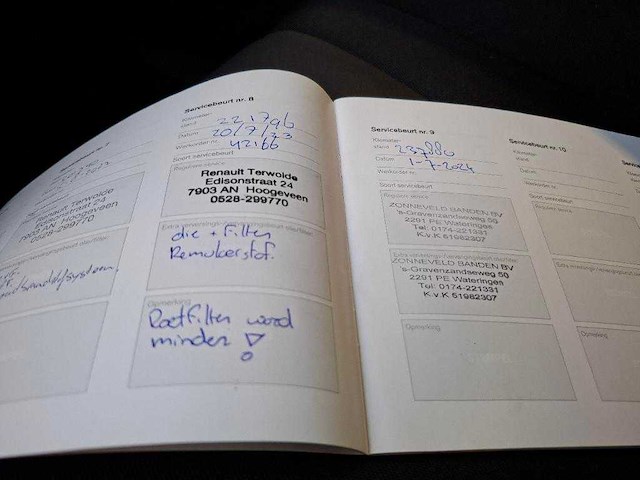 Servicebeurt nr. 8
Kilometer-
stand 221796
Datum 20/7/23
Werkorder nr. 42166
Soort servicebeurt
Reguliere service
Renault Terwolde
Edisonstraat 24
7903 AN Hoogeveen
0528-299770
olie + Filter
Remvloeistof.
Opmerking
Roetfilter word
minder !
Renault Terwolde
Edisonstraat 24
7903 AN Hoogeveen
0528-299770
Servicebeurt nr. 9
Kilometer-
stand 237880
Datum 1-7-2024
Werkorder nr.
Soort servicebeurt
Reguliere service
ZONNEVELD BANDEN BV
's-Gravenzandseweg 50
2291 PE Wateringen
Tel: 0174-221331
K.v.K 51982307
ZONNEVELD BANDEN BV
's-Gravenzandseweg 50
2291 PE Wateringen
Tel: 0174-221331
K.v.K 51982307
Opmerking
Servicebeurt nr. 10
Kilometer-
stand
Datum
Werkorder nr.
Soort servicebeurt
Reguliere service
Opmerking